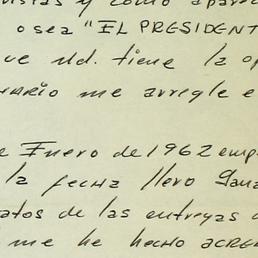 y como apare
o sea "EL PRESIDENT
ue Ud. tiene la op
NARIO me arregle e
e Enero de 1962 emp
la fecha llevo gana
atos de las entregas
me he hecho ACREE